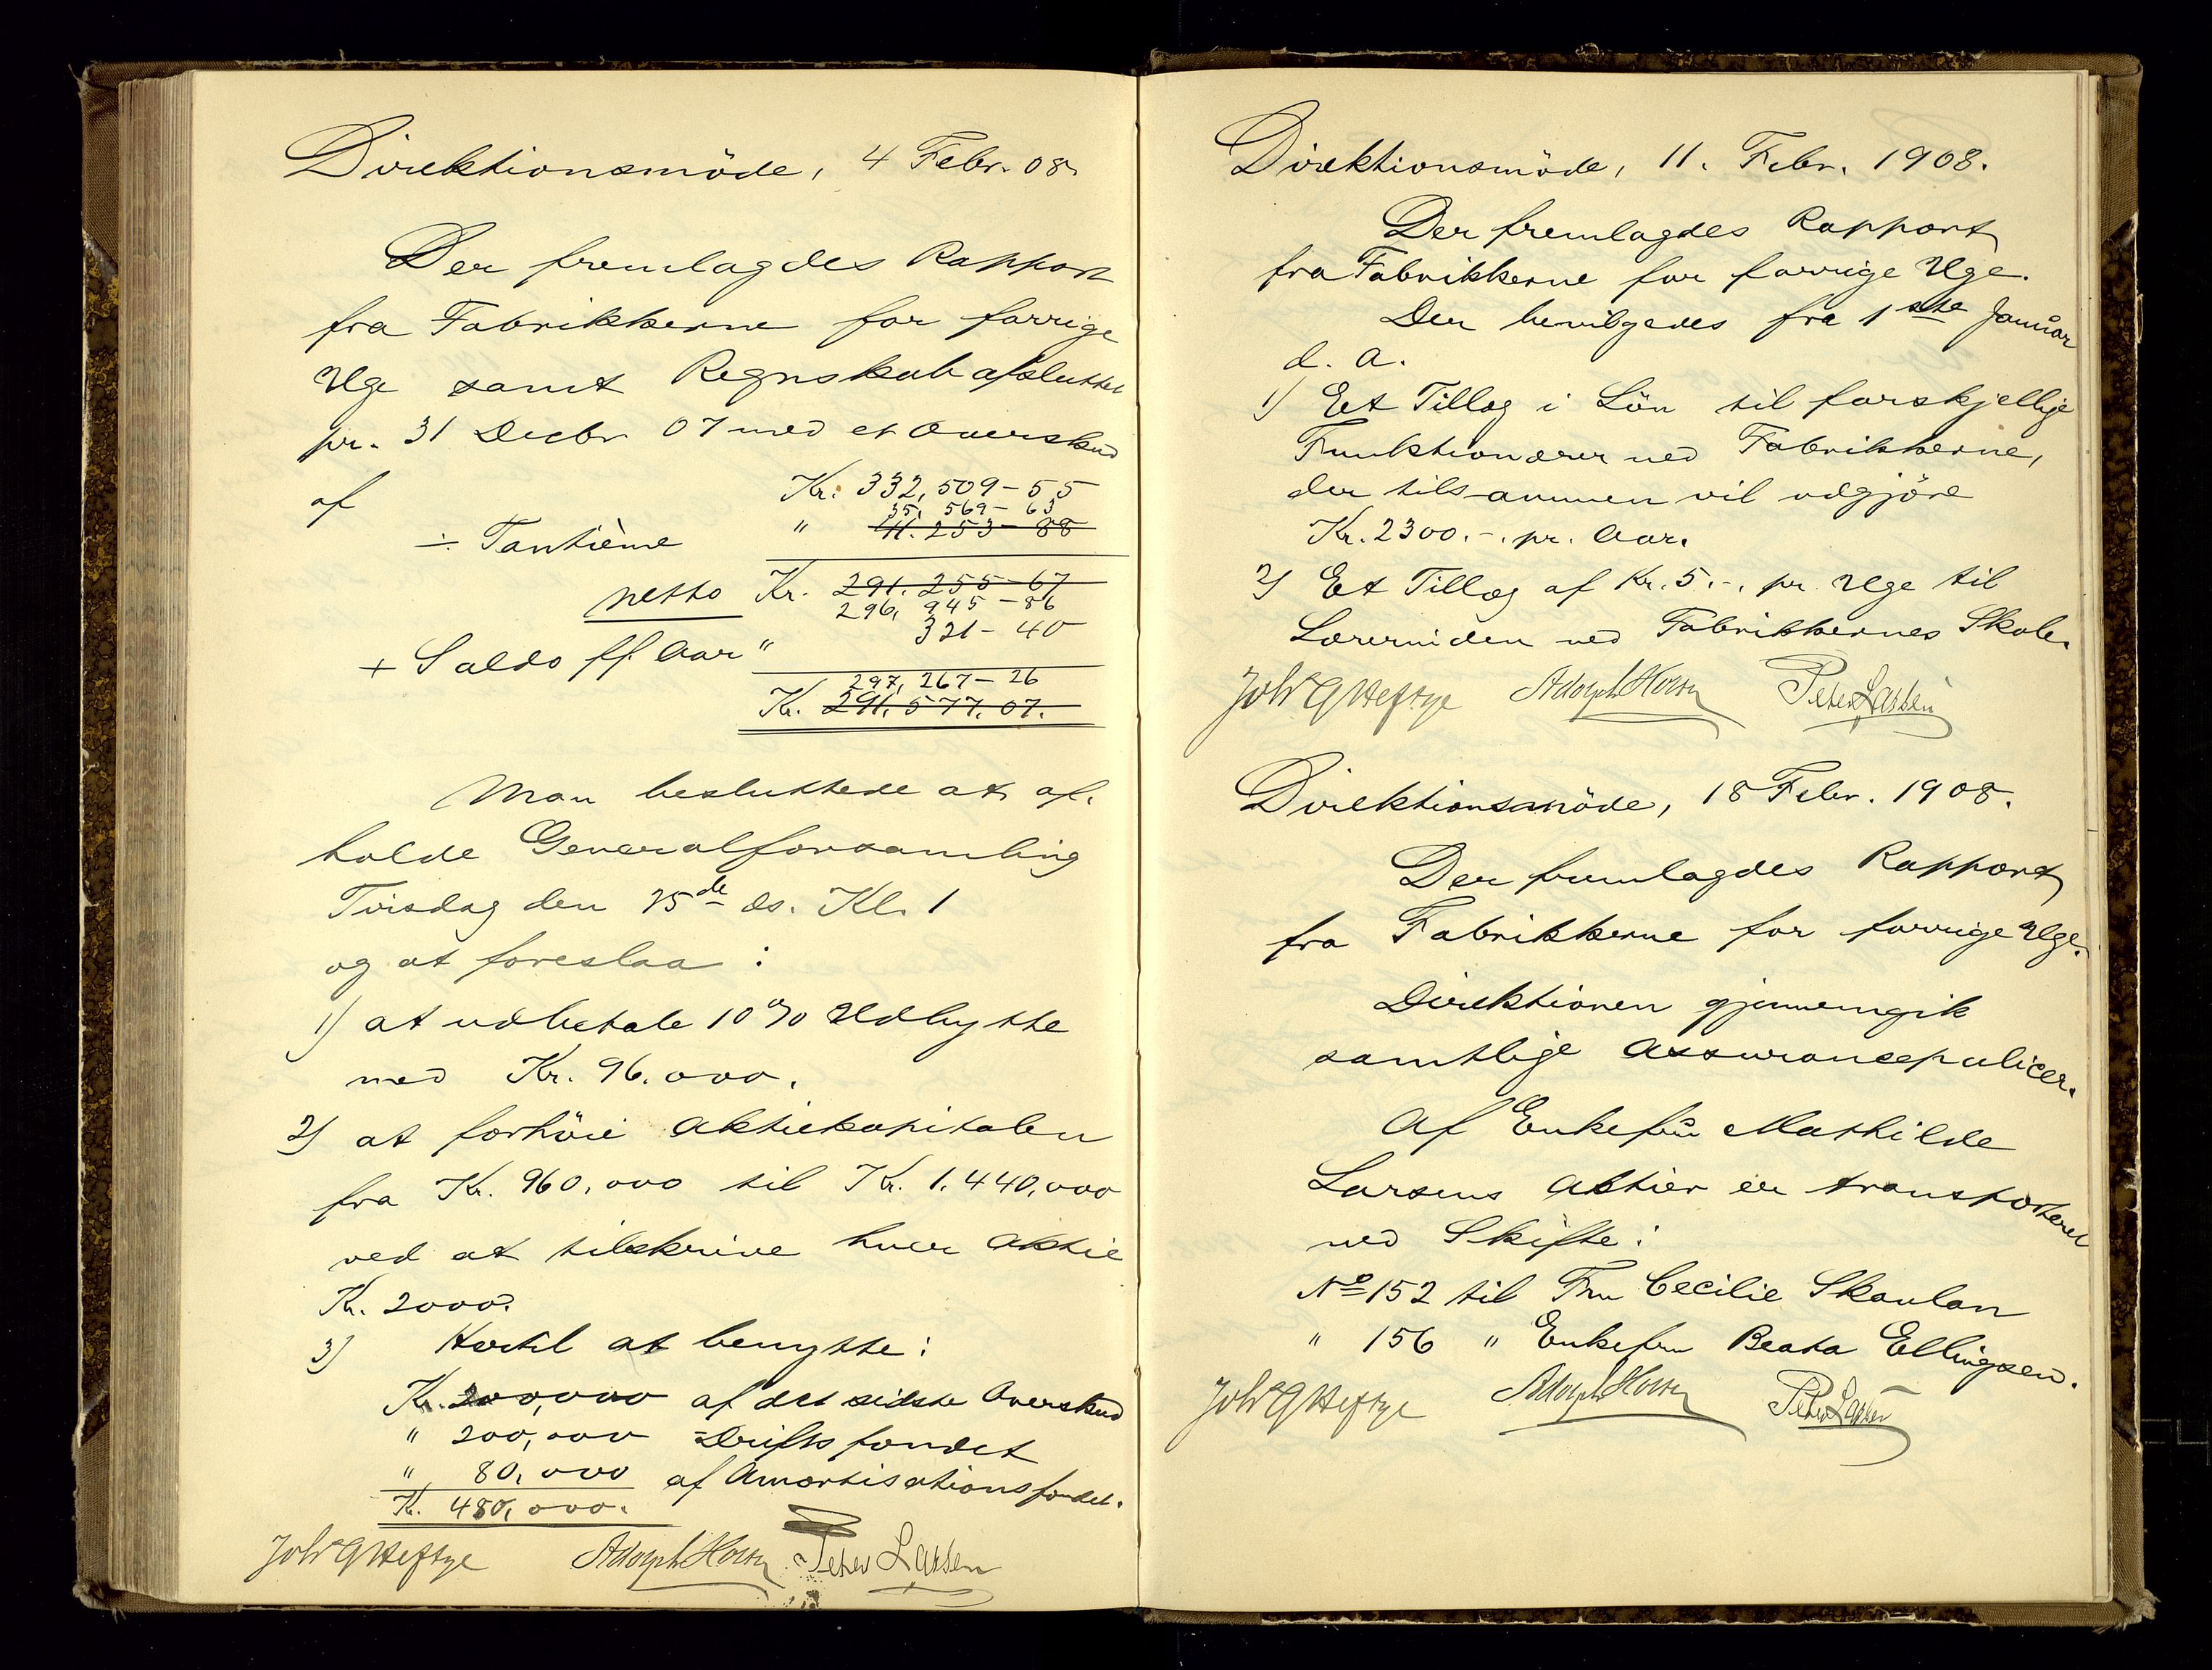 Direktionsmöde, 4 Febr. 08.
Der fremlagdes Rapport
fra Fabrikkerne for forrige
Uge samt Regnskab afsluttet
pr. 31 Decbr 07 med et Overskud
af Kr. 332,509-55
35,569-63
÷ Tantième " 41.253-88
netto Kr. 291.255-67
296,945-86
+ Saldo ff. Aar " 321-40
297,267-26
Kr. 291,577.07.
Man besluttede at af-
holde Generalforsamling
Tirsdag den 25de ds. Kl. 1
og at foreslaa:
1) at udbetale 10% Udbytte
med Kr. 96.000.
2) at forhöie Aktiekapitalen
fra Kr. 960,000 til Kr. 1.440,000
ved at tilskrive hver Aktie
Kr. 2000.
3) Hertil at benytte:
Kr. 200,000 af det sidste Overskud
" 200,000 Driftsfondet
" 80,000 af Amortisationsfondet.
Kr. 480,000.
Johs G Heftye Adolph Holth Peter Larsen
Direktionsmöde, 11. Febr. 1908.
Der fremlagdes Rapport
fra Fabrikkerne for forrige Uge.
Der bevilgedes fra 1ste Januar
d. a.
1) Et Tillæg i Lön til forskjellige
Funktionærer ved Fabrikkerne,
der tilsammen vil udgjöre
Kr. 2300.-. pr. Aar.
2) Et Tillæg af Kr. 5.-. pr. Uge til
Lærerinden ved Fabrikkernes Skole.
Johs G Heftye Adolph Holth Peter Larsen
Direktionsmöde, 18 Febr. 1908.
Der fremlagdes Rapport
fra Fabrikkerne for forrige Uge.
Direktionen gjennemgik
samtlige Assurancepolicer.
Af Enkefru Mathilde
Larsens Aktier er transporteret
ved Skifte:
No 152 til Fru Cecilie Skavlan
" 156 " Enkefru Beata Ellingsen.
Johs G Heftye Adolph Holth Peter Larsen